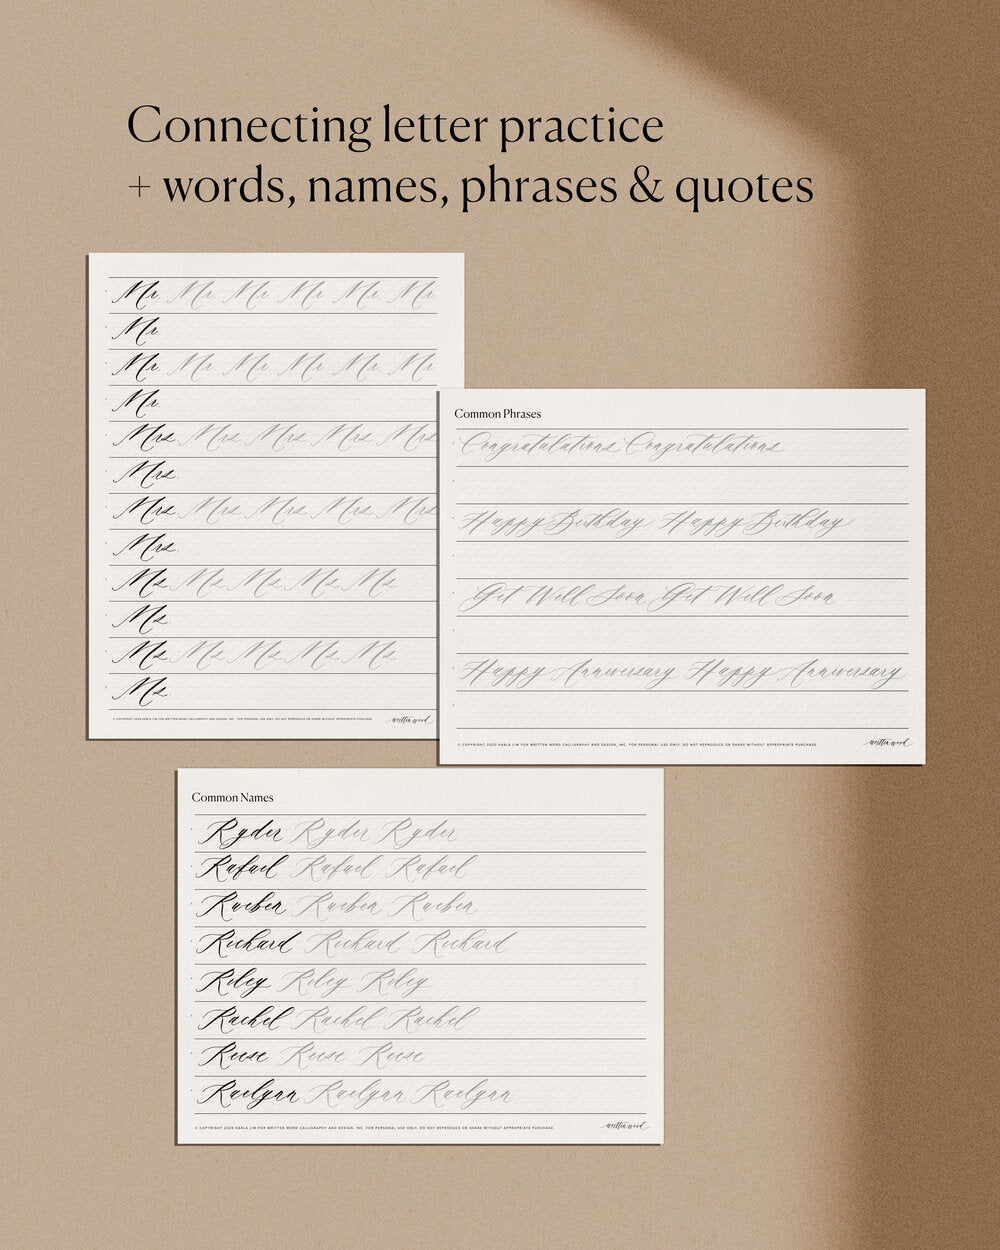 Connecting letter practice
+ words, names, phrases & quotes
Mr Mr Mr Mr Mr Mr
Mr
Mr Mr Mr Mr Mr Mr
Mr
Mrs Mrs Mrs Mrs Mrs
Mrs
Mrs Mrs Mrs Mrs Mrs
Mrs
Ms Ms Ms Ms Ms
Ms
Ms Ms Ms Ms Ms
Ms
© COPYRIGHT 2020 KARLA LIM FOR WRITTEN WORD CALLIGRAPHY AND DESIGN, INC. FOR PERSONAL USE ONLY, DO NOT REPRODUCE OR SHARE WITHOUT APPROPRIATE PURCHASE.
written word
Common Phrases
Congratulations Congratulations
Happy Birthday Happy Birthday
Get Well Soon Get Well Soon
Happy Anniversary Happy Anniversary
© COPYRIGHT 2020 KARLA LIM FOR WRITTEN WORD CALLIGRAPHY AND DESIGN, INC. FOR PERSONAL USE ONLY, DO NOT REPRODUCE OR SHARE WITHOUT APPROPRIATE PURCHASE.
written word
Common Names
Ryder Ryder Ryder
Rafael Rafael Rafael
Rueben Rueben Rueben
Richard Richard Richard
Riley Riley Riley
Rachel Rachel Rachel
Reese Reese Reese
Raelynn Raelynn Raelynn
© COPYRIGHT 2020 KARLA LIM FOR WRITTEN WORD CALLIGRAPHY AND DESIGN, INC. FOR PERSONAL USE ONLY, DO NOT REPRODUCE OR SHARE WITHOUT APPROPRIATE PURCHASE.
written word